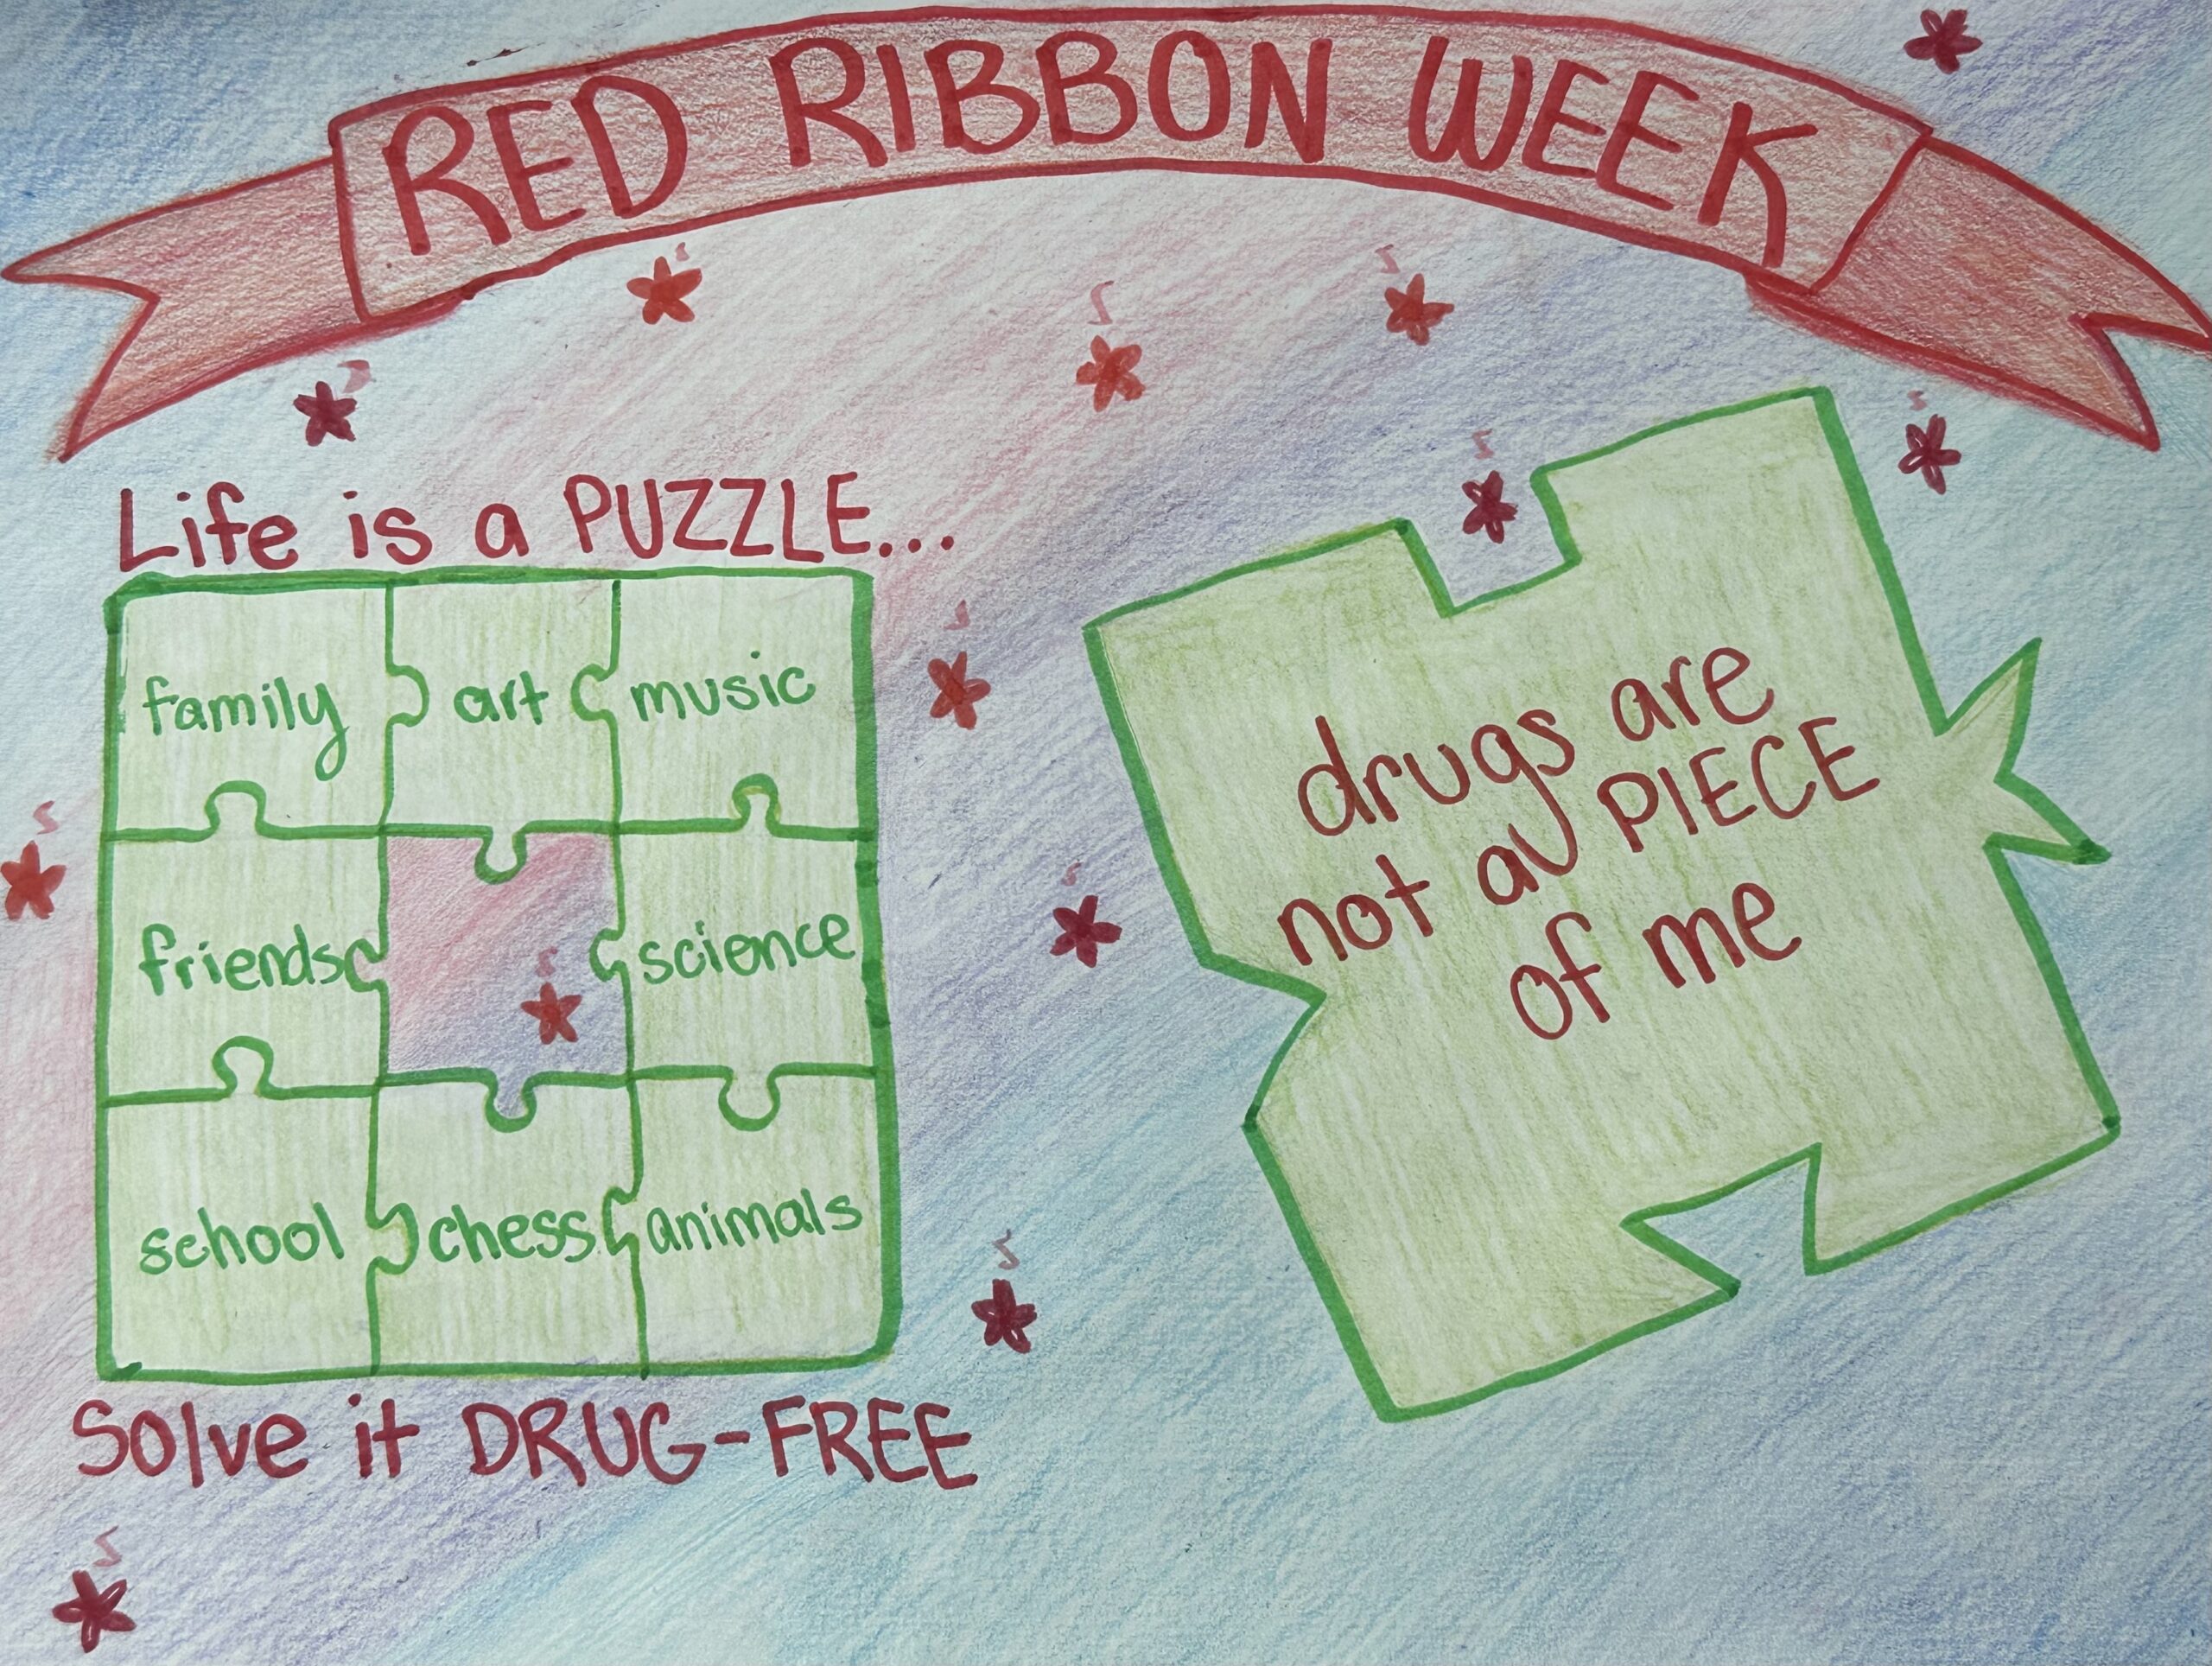 RED RIBBON WEEK
Life is a PUZZLE...
family art music
friends science
school chess animals
Solve it DRUG-FREE
drugs are
not a PIECE
of me